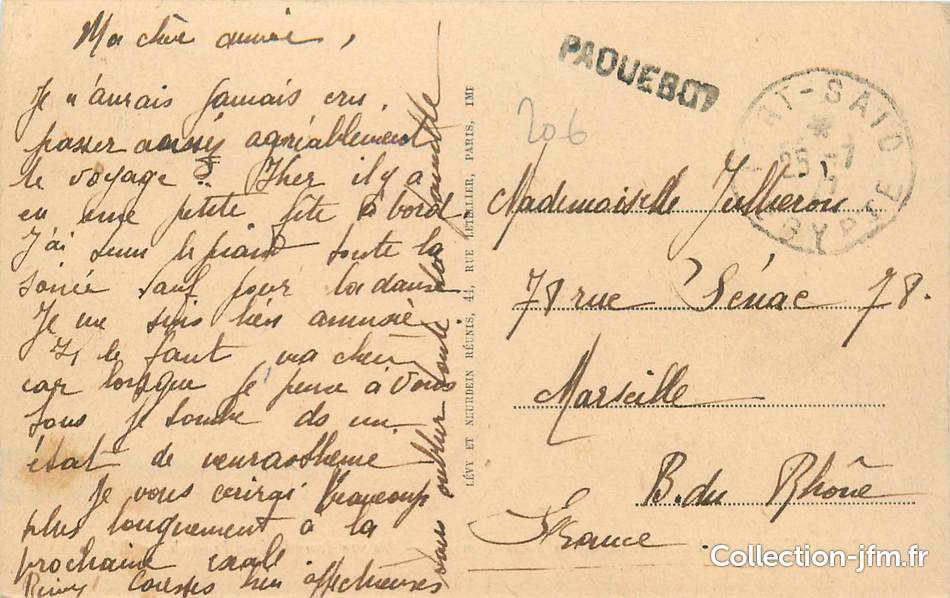 Ma chère amie,
Je n'aurais jamais cru
passer aussi agréablement
le voyage !! Hier il y a
eu une petite fête à bord
J'ai tenu le piano toute la
soirée sauf pour la danse
Je me suis bien amusée
Il le faut ma chère
car lorsque je pense à vous
tous je tombe ds un
état de neurasthénie
Je vous écrirai beaucoup
plus longuement à la
prochaine escale
caresses bien affectueuses
sans oublier toute la
LÉVY ET NEURDEIN RÉUNIS, 44, RUE LETELLIER, PARIS, IMP
PAQUEBOT
206
RT-SAID
25 -7
EGYPTE
Mademoiselle
78 rue Sénac 78.
Marseille
B. du Rhône
France
Collection-jfm.fr